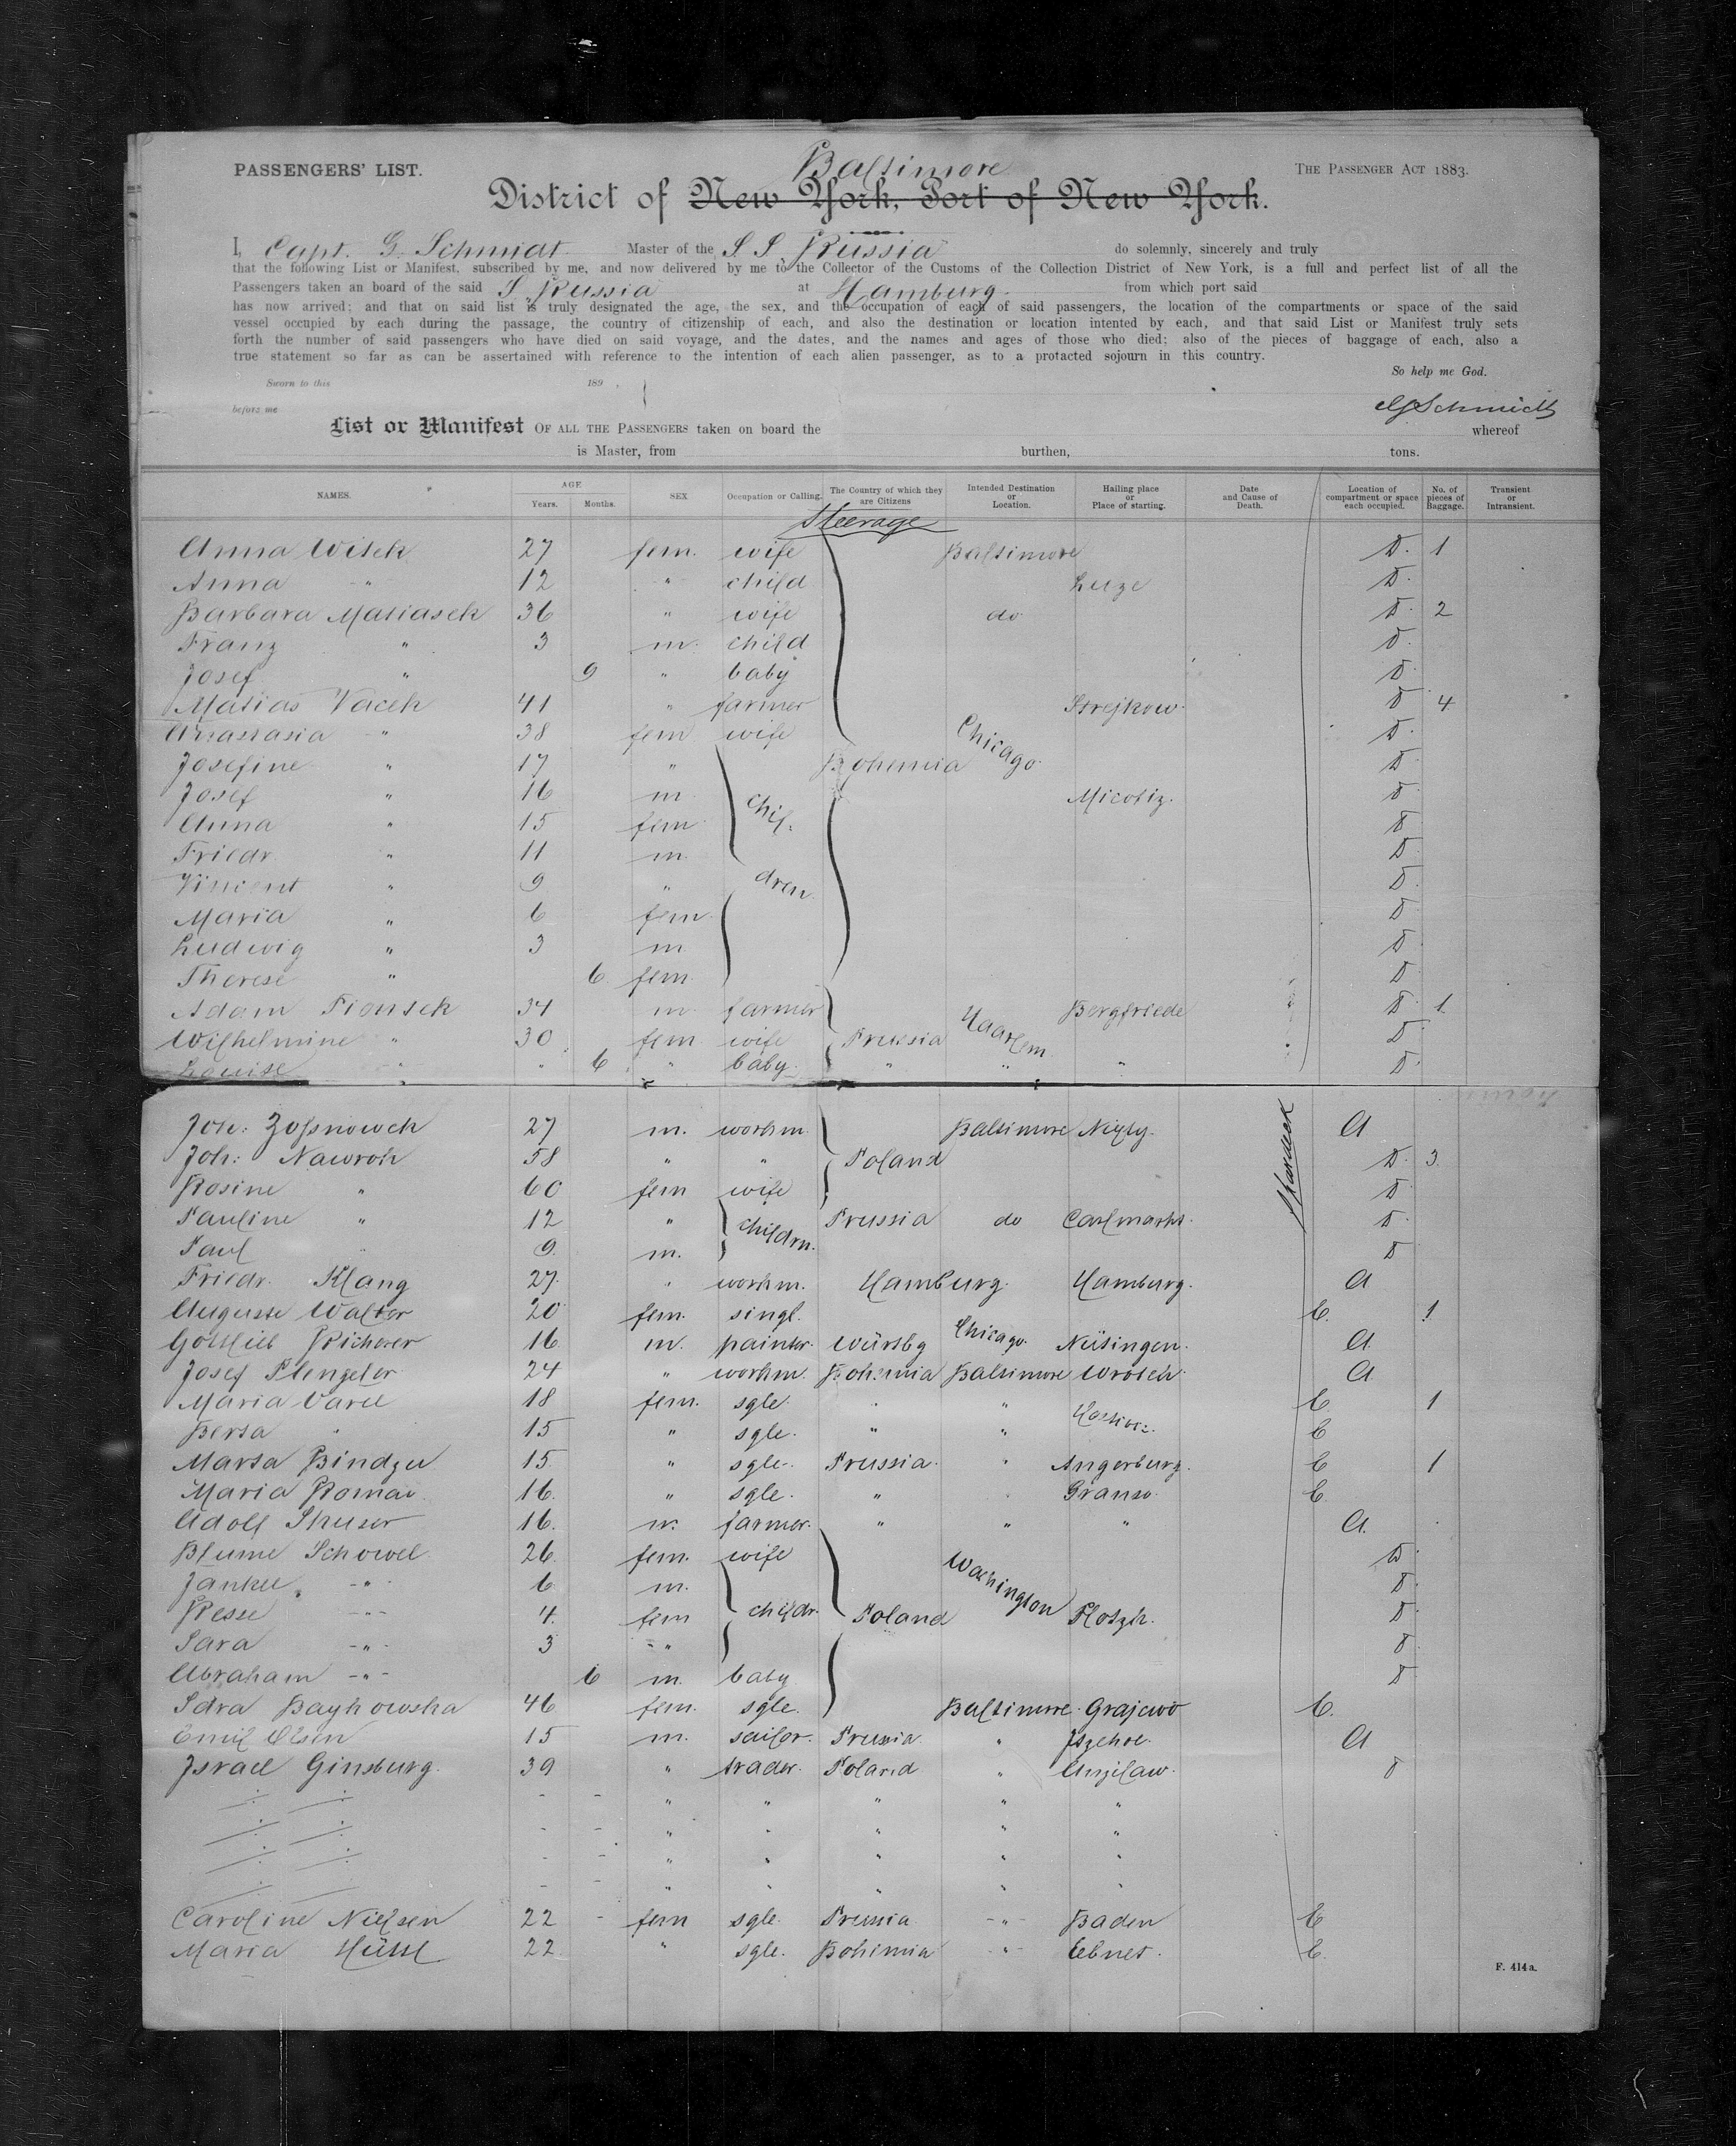 PASSENGERS' LIST.
Baltimore
THE PASSENGER ACT 1883.
District of New York, Port of New York.
I, Capt. G. Schmidt Master of the S. S. Russia do solemnly, sincerely and truly
that the following List or Manifest, subscribed by me, and now delivered by me to the Collector of the Customs of the Collection District of New York, is a full and perfect list of all the
Passengers taken an board of the said S. Russia at Hamburg from which port said
has now arrived; and that on said list is truly designated the age, the sex, and the occupation of each of said passengers, the location of the compartments or space of the said
vessel occupied by each during the passage, the country of citizenship of each, and also the destination or location intented by each, and that said List or Manifest truly sets
forth the number of said passengers who have died on said voyage, and the dates, and the names and ages of those who died; also of the pieces of baggage of each, also a
true statement so far as can be assertained with reference to the intention of each alien passenger, as to a protacted sojourn in this country.
So help me God.
Sworn to this 189
before me
G Schmidt
List or Manifest OF ALL THE PASSENGERS taken on board the whereof
is Master, from burthen, tons.
NAMES. AGE Years. Months. SEX Occupation or Calling. The Country of which they are Citizens Intended Destination or Location. Hailing place or Place of starting. Date and Cause of Death. Location of compartment or space each occupied. No. of pieces of Baggage. Transient or Intransient.
Steerage
Anna Witek 27 fem. wife Baltimore D. 1
Anna " 12 " child Luze D.
Barbara Matiasek 36 " wife do D. 2
Franz " 3 m. child D.
Josef " 9 " baby D.
Matias Vacek 41 " farmer Strejkow. D 4
Anastasia " 38 fem wife Chicago D.
Josefine " 17 " Bohemia D
Josef " 16 m chil- Micotiz. D
Anna " 15 fem D
Friedr. " 11 m. D
Vincent " 9 " dren D
Maria " 6 fem D
Ludwig " 3 m. D
Therese " 6 fem. D
Adam Pionsek 34 m farmer Bergfriede D. 1
Wilhelmine " 30 fem wife Prussia Haarlem D
Louise " " 6 " baby. " " " D
Joh: 27 m. workm. Baltimore A
Joh: Nawroh 58 " " Poland D. 3
Rosine " 60 fem wife D
Pauline " 12 " childrn. Prussia do Carlmarkt. D
Paul " 9 m. D
Friedr. Klang 27 " workm. Hamburg. Hamburg. A
Auguste Walter 20 fem. singl. C. 1
Gottlieb Richerer 16 m. painter. Würtbg Chicago. Nüsingen. A
Josef Plengeler 24 " workm. Bohemia Baltimore Wrotch. A
Maria Varel 18 fem. sgle. " " C 1
Berta " 15 " sgle. " " C
Marta Bindzu 15 " sgle. Prussia. " Angerburg. C 1
Maria Roman 16. " sgle. " Granso. C
Adolf 16. m. farmer. " " " A.
Blume Schowel 26 fem. wife D.
Jankel -"- 6 m. Washington D
Resse -"- 4. fem childr. Poland Plotzk. D
Sara -"- 3 " D
Abraham -"- 6 m. baby D
Sara Baykowska 46 fem. sgle. Baltimore. Grajewo C.
Emil Olsen 15 m. sailor. Prussia. " Jtzehoe. A
Jsrael Ginsburg. 39 " trader. Poland " D
- - " " " " "
- - " " " " "
- - " " " " "
- - " " " " "
Caroline Nielsen 22 - fem sgle. Prussia. -"- Baden C
Maria Hüttl 22. " sgle. Bohimia -"- Ebnet. C.
F. 414 a.